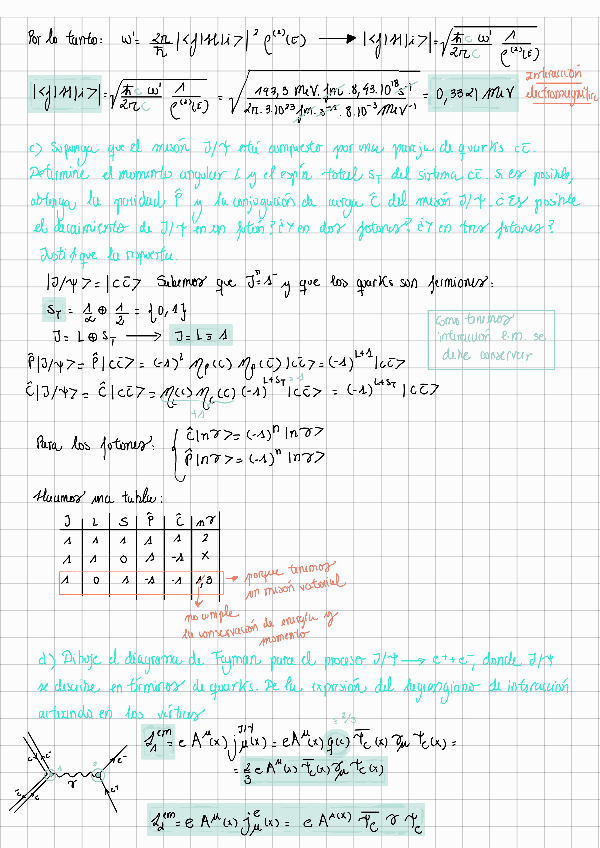 Por lo tanto: ω' = 2π/ħ |<f|H|i>|² ρ⁽²⁾(E) → |<f|H|i>| = √(ħc ω'/2πc 1/ρ⁽²⁾(E))
|<f|H|i>| = √(ħc ω'/2πc 1/ρ⁽²⁾(E)) = √(197,3 MeV·fm · 8,43·10¹⁸ s⁻¹ / 2π·3·10²³ fm·s⁻¹ · 8·10⁻³ MeV⁻¹) = 0,3321 MeV
Interacción
electromagnética
c) Suponga que el mesón J/Ψ está compuesto por una pareja de quarks cc̄.
Determine el momento angular L y el espín total S_T del sistema cc̄. Si es posible,
obtenga la paridad P̂ y la conjugación de carga Ĉ del mesón J/Ψ. ¿Es posible
el decaimiento de J/Ψ en un fotón? ¿Y en dos fotones? ¿Y en tres fotones?
Justifique la respuesta.
|J/Ψ> = |cc̄> Sabemos que Jᴾ=1⁻ y que los quarks son fermiones:
S_T = 1/2 ⊕ 1/2 = {0,1}
J = L ⊕ S_T → J = L = 1
Como tenemos
interacción e.m. se
debe conservar
P̂|J/Ψ> = P̂|cc̄> = (-1)ᴸ η_P(c) η_P(c̄)|cc̄> = (-1)ᴸ⁺¹|cc̄>
Ĉ|J/Ψ> = Ĉ|cc̄> = η_c(c) η_c(c̄) (-1)^(L+S_T)|cc̄> = (-1)^(L+S_T)|cc̄>
+1
Para los fotones: { Ĉ|nγ> = (-1)ⁿ|nγ>
P̂|nγ> = (-1)ⁿ|nγ>
Hacemos una tabla:
J L S P̂ Ĉ nγ
1 1 1 1 1 2
1 1 0 1 -1 X
1 0 1 -1 -1 1,3 → porque tenemos
un mesón vectorial
no cumple
la conservación de energía y
momento
d) Dibuje el diagrama de Feyman para el proceso J/Ψ → e⁺+e⁻, donde J/Ψ
se describe en términos de quarks. De la expresión del lagrangiano de interacción
actuando en los vértices
= 2/3
ℒ₁ᵉᵐ = e Aᵘ(x) j_μ^(J/Ψ)(x) = e Aᵘ(x) q(c) Ψ̄_c(x) γ_μ Ψ_c(x) =
= 2/3 e Aᵘ(x) Ψ̄_c(x) γ_μ Ψ_c(x)
c̄ c 1 γ 2 e⁻ e⁺
ℒ₂ᵉᵐ = e Aᵘ(x) j_μ^e(x) = e Aᵘ(x) Ψ̄_e γ Ψ_e